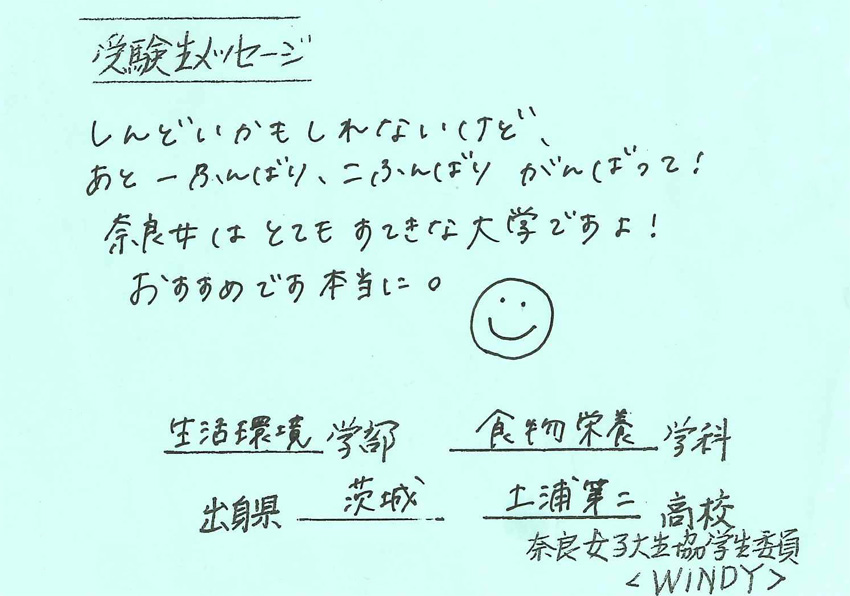 受験生メッセージ
しんどいかもしれないけど、
あと一ふんばり、二ふんばり がんばって!
奈良女はとてもすてきな大学ですよ!
おすすめです本当に。
生活環境学部 食物栄養学科
出身県 茨城 土浦第二高校
奈良女子大生協学生委員
<WiNDY>